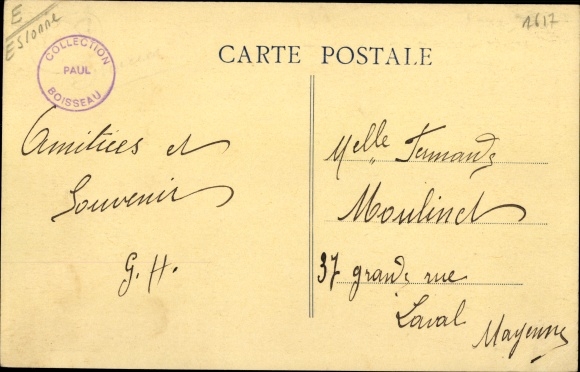 E
Essonne
1617
COLLECTION
PAUL
BOISSEAU
CARTE POSTALE
Amitiées et
Souvenir
G. H.
Melle Fernande
Moulinet
37 grande rue
Laval
Mayenne